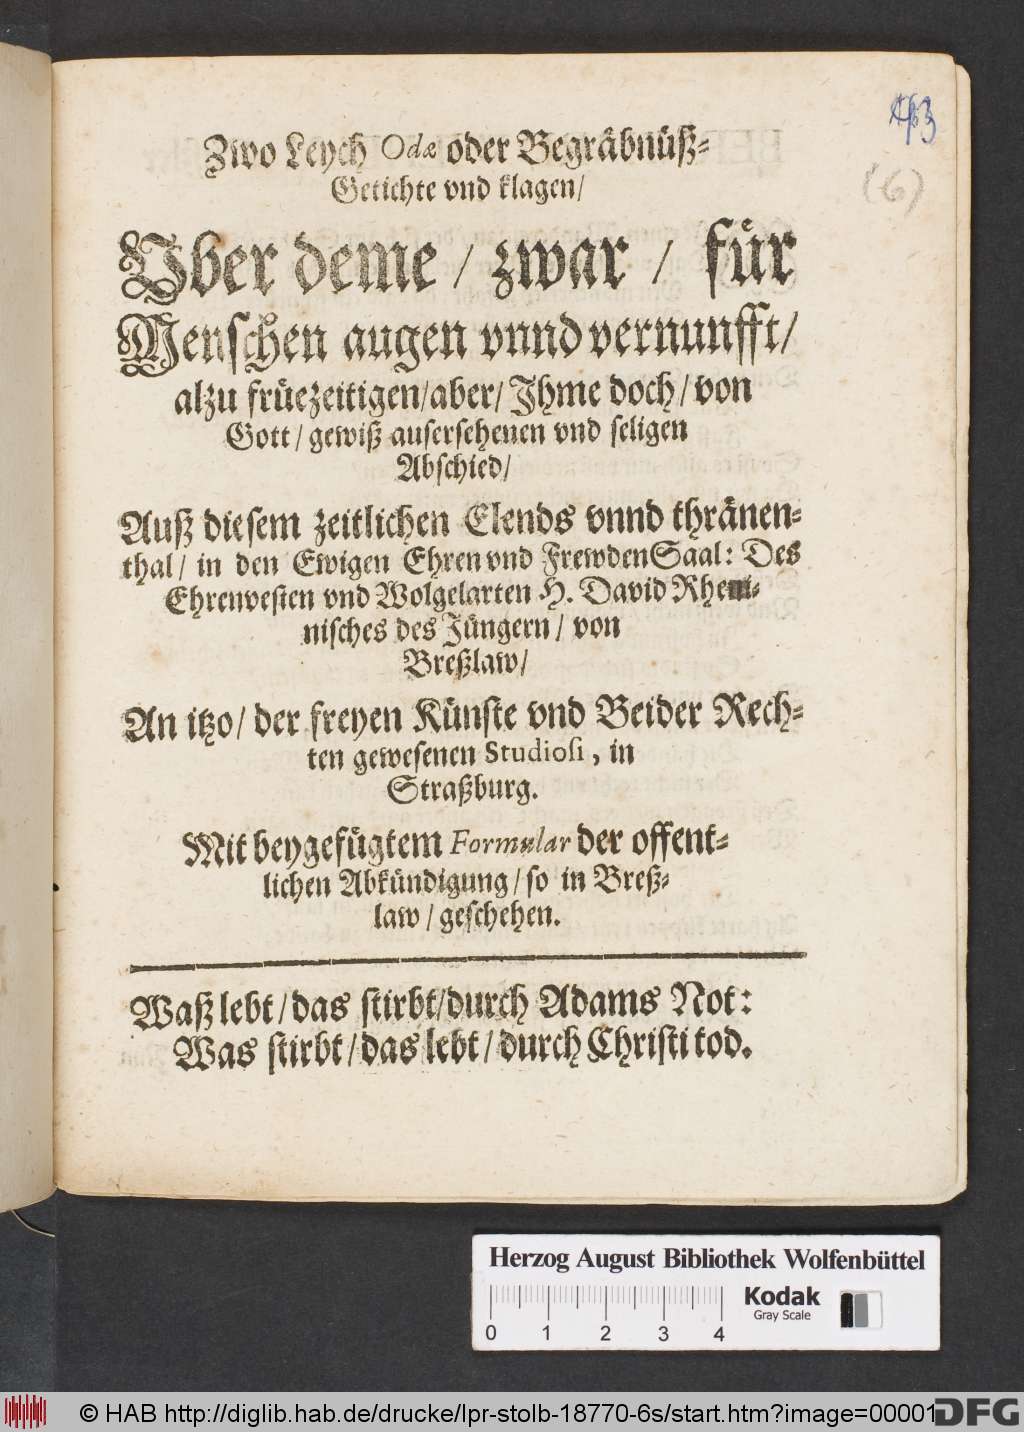 Zwo Leych Odæ oder Begräbnüß⸗
Getichte vnd klagen/
Vber deme / zwar / für
Menschen augen vnnd vernunfft/
alzu früezeitigen/aber/ Ihme doch/ von
Gott / gewiß ausersehenen vnd seligen
Abschied/
Auß diesem zeitlichen Elends vnnd thränen⸗
thal/ in den Ewigen Ehren vnd FrewdenSaal: Des
Ehrenvesten vnd Wolgelarten H. David Rheni⸗
nisches des Jüngern/ von
Breßlaw/
An itzo/ der freyen Künste vnd Beider Rech⸗
ten gewesenen Studiosi, in
Straßburg.
Mit beygefügtem Formular der offent⸗
lichen Abkündigung/ so in Breß⸗
law / geschehen.
Waß lebt/das stirbt/durch Adams Not:
Was stirbt/das lebt/durch Christi tod.
(6)
Herzog August Bibliothek Wolfenbüttel
0 1 2 3 4
Kodak
Gray Scale
© HAB http://diglib.hab.de/drucke/lpr-stolb-18770-6s/start.htm?image=00001
DFG